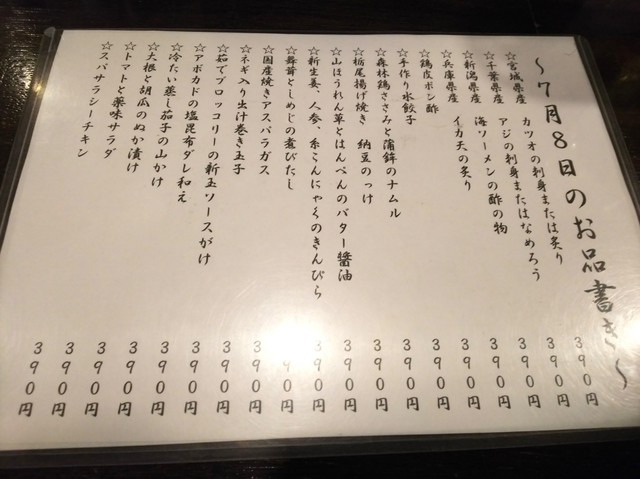 ～7月8日のお品書き～
☆宮城県産 カツオの刺身または炙り 390円
☆千葉県産 アジの刺身またはなめろう 390円
☆新潟県産 海ソーメンの酢の物 390円
☆兵庫県産 イカ天の炙り 390円
☆鶏皮ポン酢 390円
☆手作り水餃子 390円
☆森林鶏ささみと蒲鉾のナムル 390円
☆栃尾揚げ焼き 納豆のっけ 390円
☆山ほうれん草とはんぺんのバター醤油 390円
☆新生姜、人参、糸こんにゃくのきんぴら 390円
☆舞茸としめじの煮びたし 390円
☆国産焼きアスパラガス 390円
☆ネギ入り出汁巻き玉子 390円
☆茹でブロッコリーの新玉ソースがけ 390円
☆アボカドの塩昆布ダレ和え 390円
☆冷たい蒸し茄子の山かけ 390円
☆大根と胡瓜のぬか漬け 390円
☆トマトと薬味サラダ 390円
☆スパサラシーチキン 390円